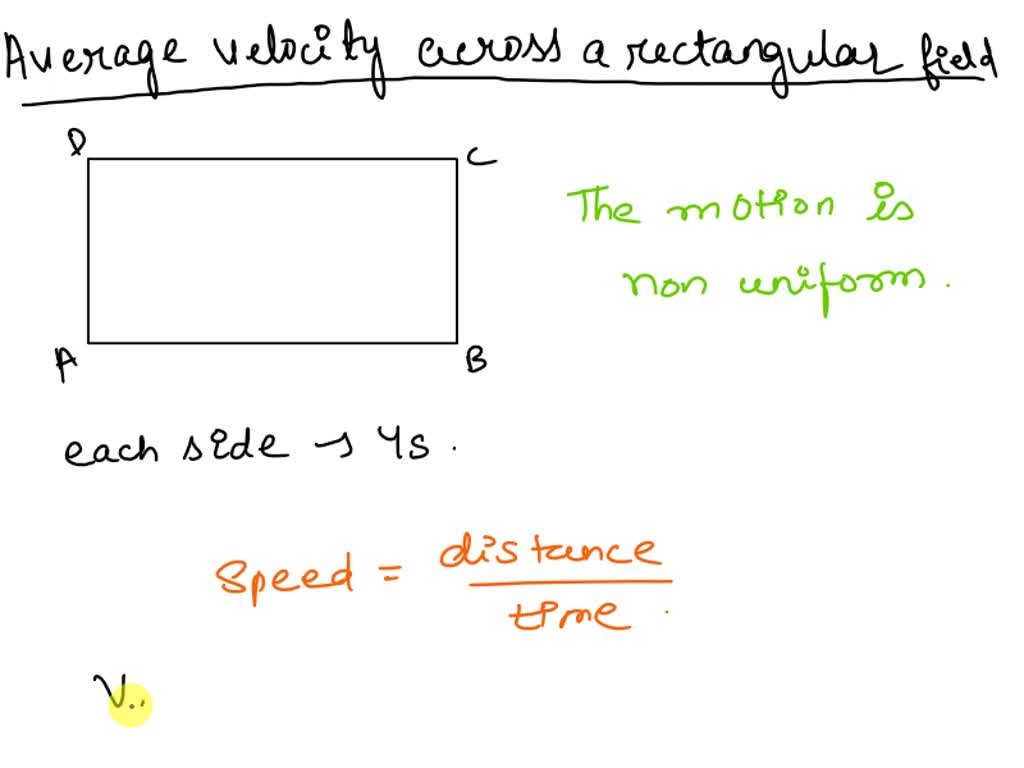 Average velocity across a rectangular field
D
C
The motion is
non uniform.
A
B
each side → 4s.
Speed = distance
time.
V